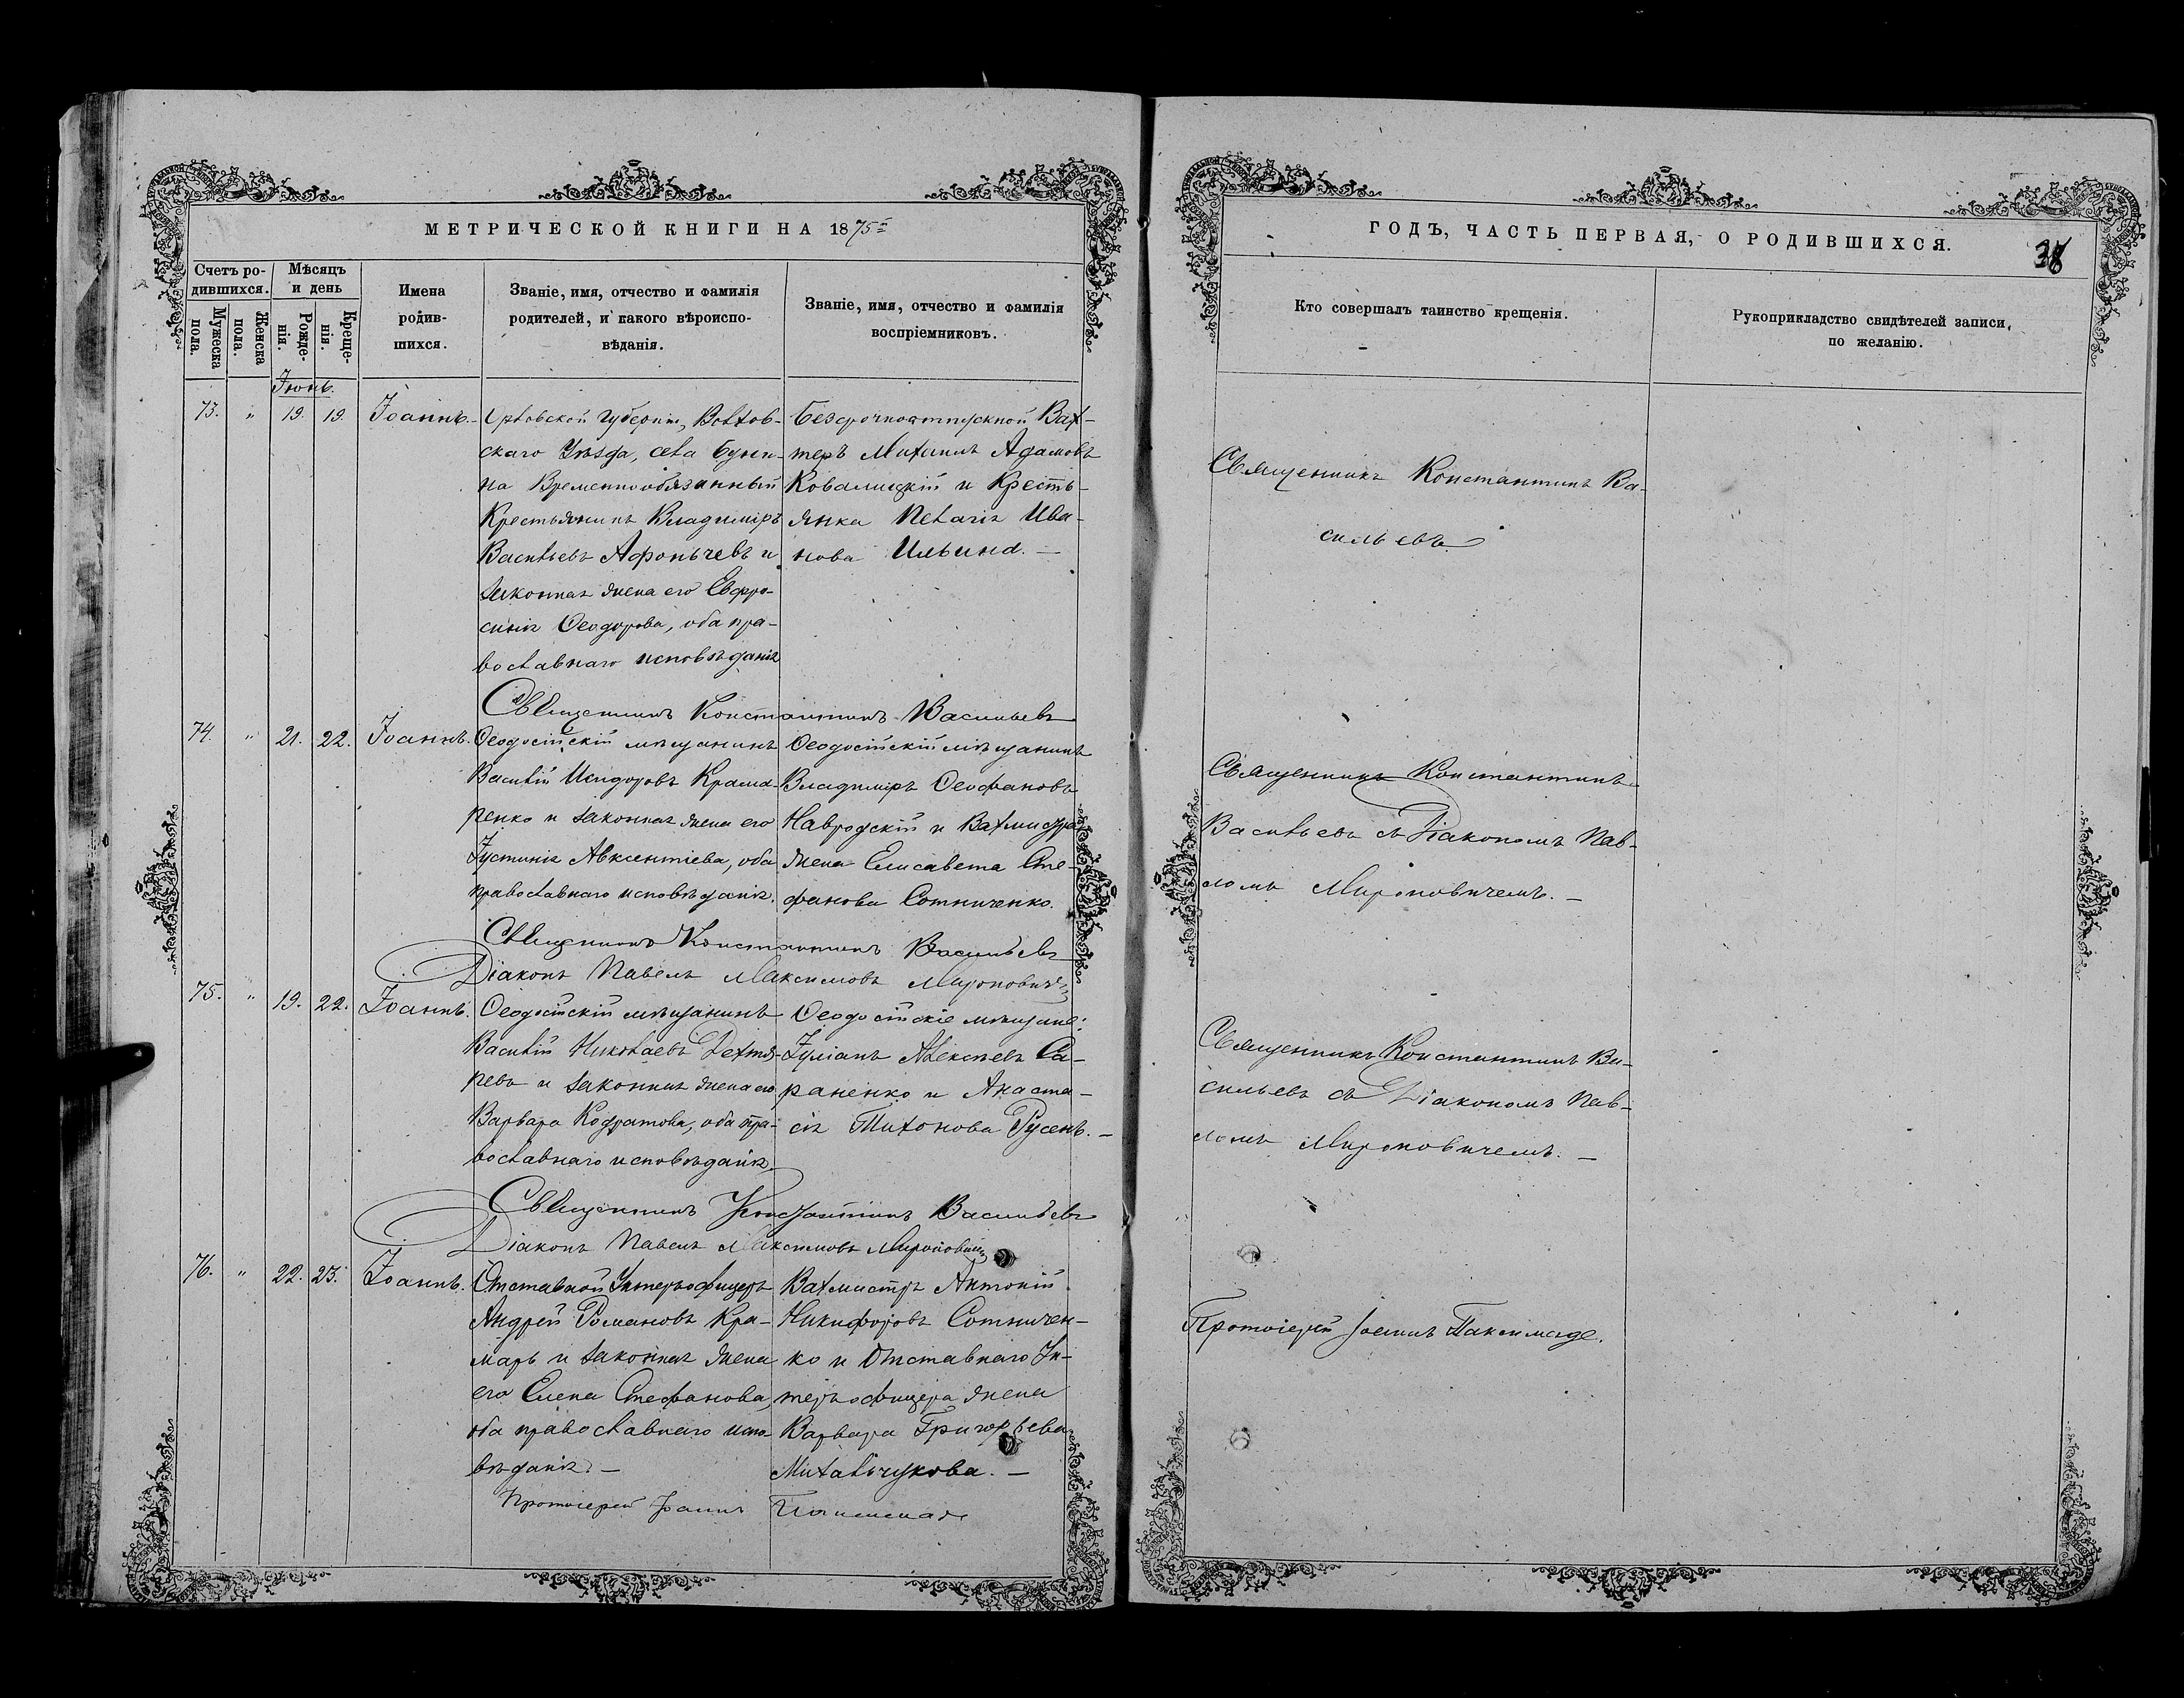 МЕТРИЧЕСКОЙ КНИГИ НА 1875
Счетъ ро-
дившихся.
Мужеска
пола.
Женска
пола.
Мѣсяцъ
и день
Рожде-
нія.
Креще-
нія.
Имена
родив-
шихся.
Званіе, имя, отчество и фамилія
родителей, и какого вѣроиспо-
вѣданія.
Званіе, имя, отчество и фамилія
воспріемниковъ.
Іюнь.
73. " 19. 19. Іоаннъ.
Орловской губерніи, Волхов-
скаго Уѣзда, села Буни-
на Временнообязанный
Крестьянинъ Владиміръ
Васильевъ Афонычевъ и
законная жена его Евфро-
синія Ѳеодорова, оба пра-
вославнаго исповѣданія
Безсрочноотпускной Вах-
теръ Михаилъ Адамовъ
Ковалицкій и Кресть-
янка Пелагія Ива-
нова Ильина. —
Священникъ Константинъ Васильевъ
74. " 21. 22. Іоаннъ.
Ѳеодосійскій мѣщанинъ
Василій Исидоровъ Крама-
ренко и законная жена его
Іустинія Авксентіева, оба
православнаго исповѣданія.
Ѳеодосійскій мѣщанинъ
Владиміръ Ѳеофановъ
Навродскій и Вахмистра
жена Елисавета Сте-
фанова Сотниченко.
Священникъ Константинъ Васильевъ
Діаконъ Павелъ Максимовъ Мироновичъ
75. " 19. 22. Іоаннъ.
Ѳеодосійскій мѣщанинъ
Василій Николаевъ Дехтя-
ревъ и законная жена его
Варвара Кодратова, оба пра-
вославнаго исповѣданія.
Ѳеодосійскіе мѣщане:
Іуліанъ Алексѣевъ Са-
раненко и Анаста-
сія Тихонова Русенъ. —
Священникъ Константинъ Васильевъ
Діаконъ Павелъ Максимовъ Мироновичъ
76. " 22. 23. Іоаннъ.
Отставной Унтеръ-офицеръ
Андрей Романовъ Кра-
марь и законная жена
его Елена Стефанова,
оба православнаго испо-
вѣданія. —
Вахмистръ Антоній
Никифоровъ Сотничен-
ко и Отставнаго Ун-
теръ-офицера жена
Варвара Григорьева
Михальчукова. —
Протоіерей Іоаннъ Паксимаде
ГОДЪ, ЧАСТЬ ПЕРВАЯ, О РОДИВШИХСЯ.
38
Кто совершалъ таинство крещенія.
Рукоприкладство свидѣтелей записи,
по желанію.
Священникъ Константинъ Ва-
сильевъ
Священникъ Константинъ
Васильевъ съ Діакономъ Пав-
ломъ Мироновичемъ. —
Священникъ Константинъ Ва-
сильевъ съ Діакономъ Пав-
ломъ Мироновичемъ. —
Протоіерей Іоаннъ Паксимаде.